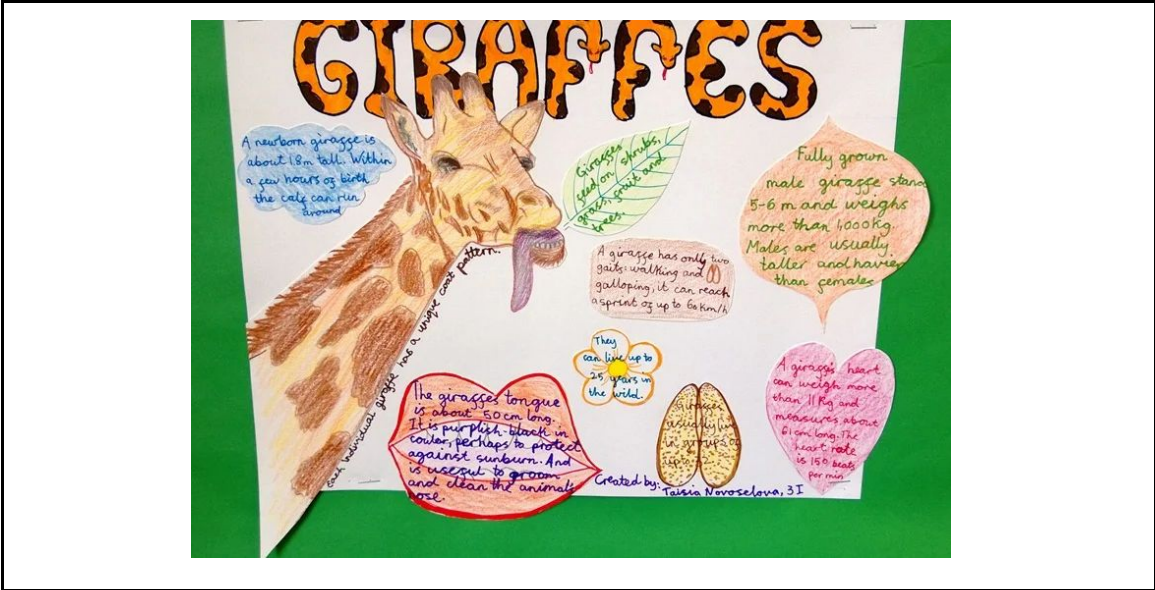 GIRAFFES
A newborn giraffe is
about 1.8m tall. Within
a few hours of birth
the calf can run
around
Giraffes
feed on shrubs,
grass, fruit and
trees.
Fully grown
male giraffe stand
5-6 m and weighs
more than 1,000kg.
Males are usually
taller and havier
than females
A giraffe has only two
gaits: walking and
galloping, it can reach
a sprint of up to 60 km/h
Each individual giraffe has a unique coat pattern.
They
can live up to
25 years in
the wild.
The giraffes tongue
is about 50cm long.
It is purplish-black in
couler, perhaps to protect
against sunburn. And
is useful to groom
and clean the animals
nose.
Giraffes
usually live
in groups of
up
A giraffe's heart
can weigh more
than 11 Kg and
measures about
61 cm long. The
heart rate
is 150 beats
per min
Created by: Taisia Novoselova, 3I